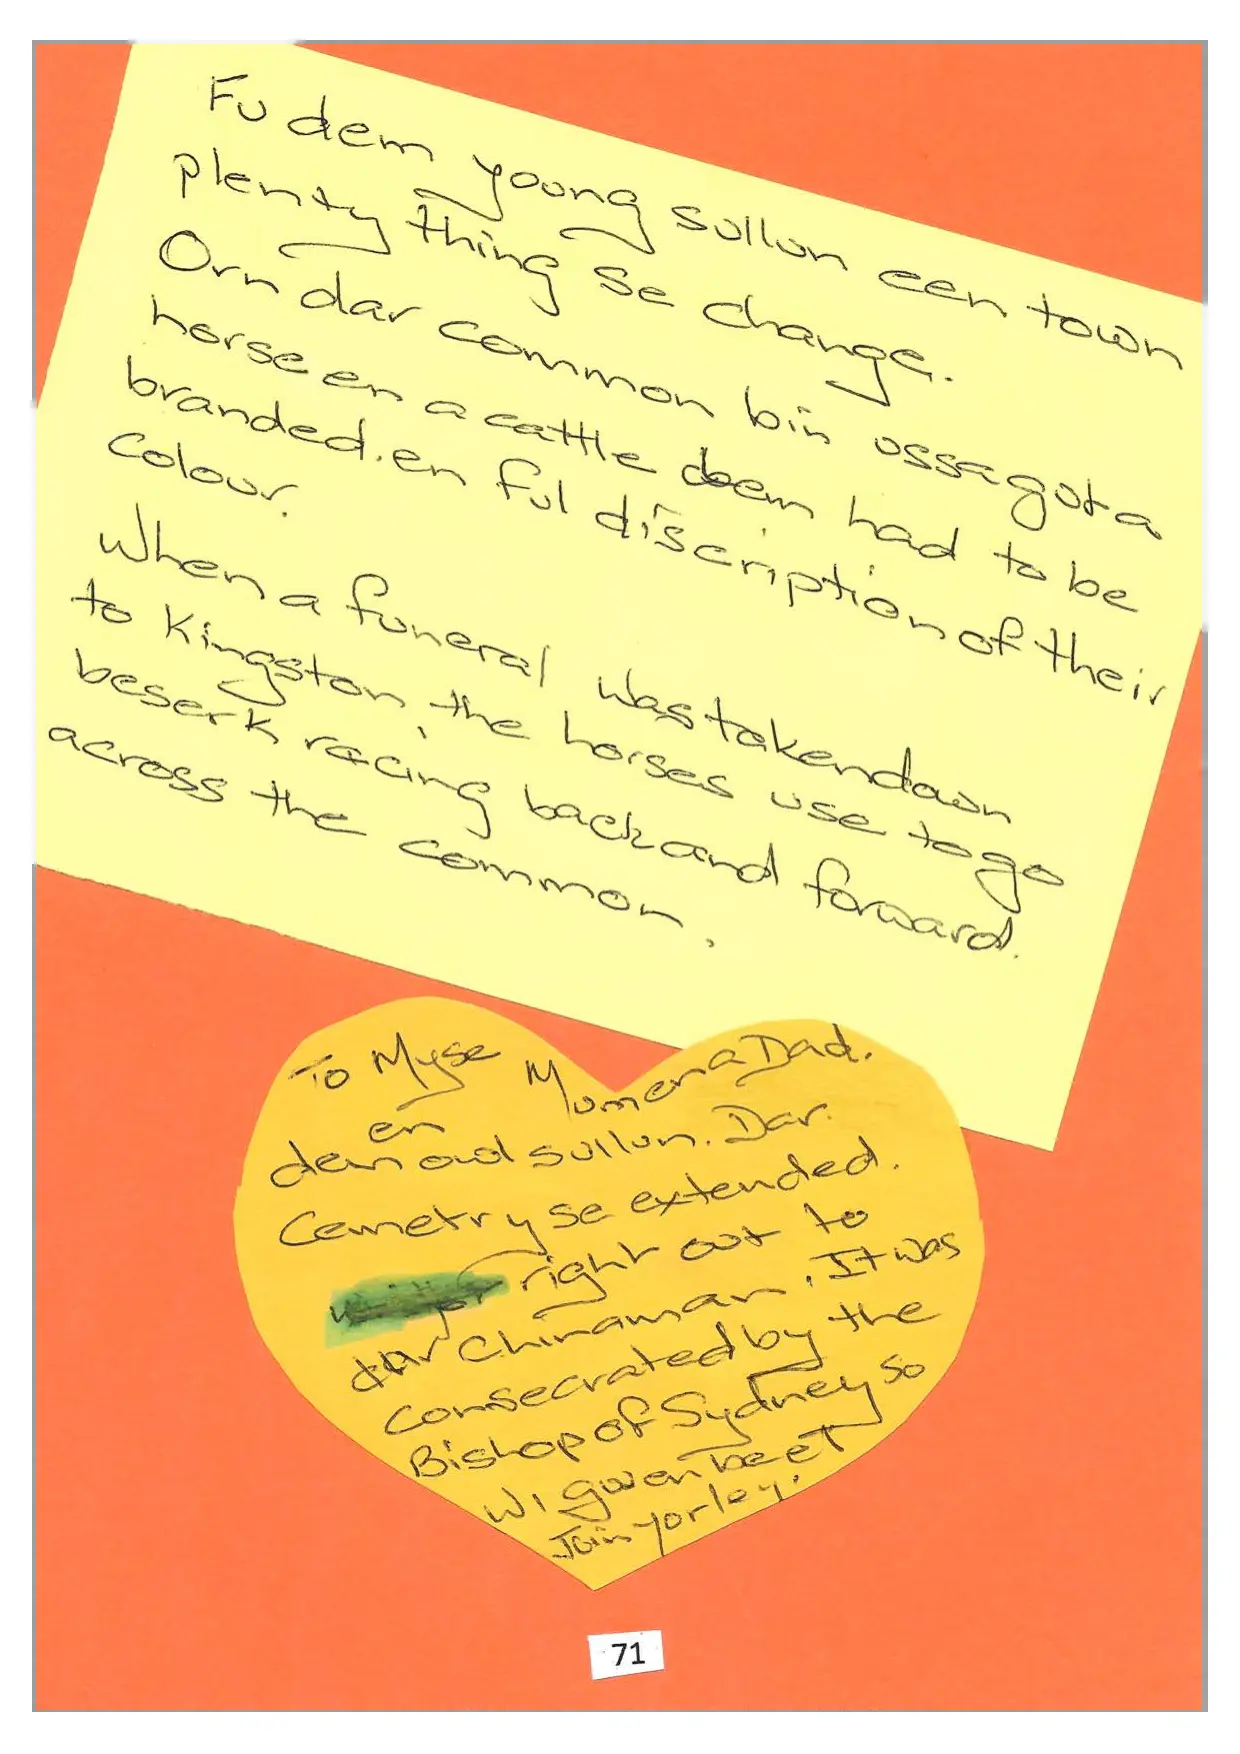 Fu dem young sullun een town
plenty thing se change.
Orn dar common bin ussa gut a
horse en a cattle dem had to be
branded. en ful discription of their
colour.
When a funeral was taken down
to Kingston, the horses use to go
beserk racing back and forward.
across the common.
To Myse Mum en a Dad.
en
dem owl sullun. Dar.
Cemetry se extended.
right out to
dar Chinaman. It was
consecrated by the
Bishop of Sydney so
wi gwen be et
Join yorley.
71